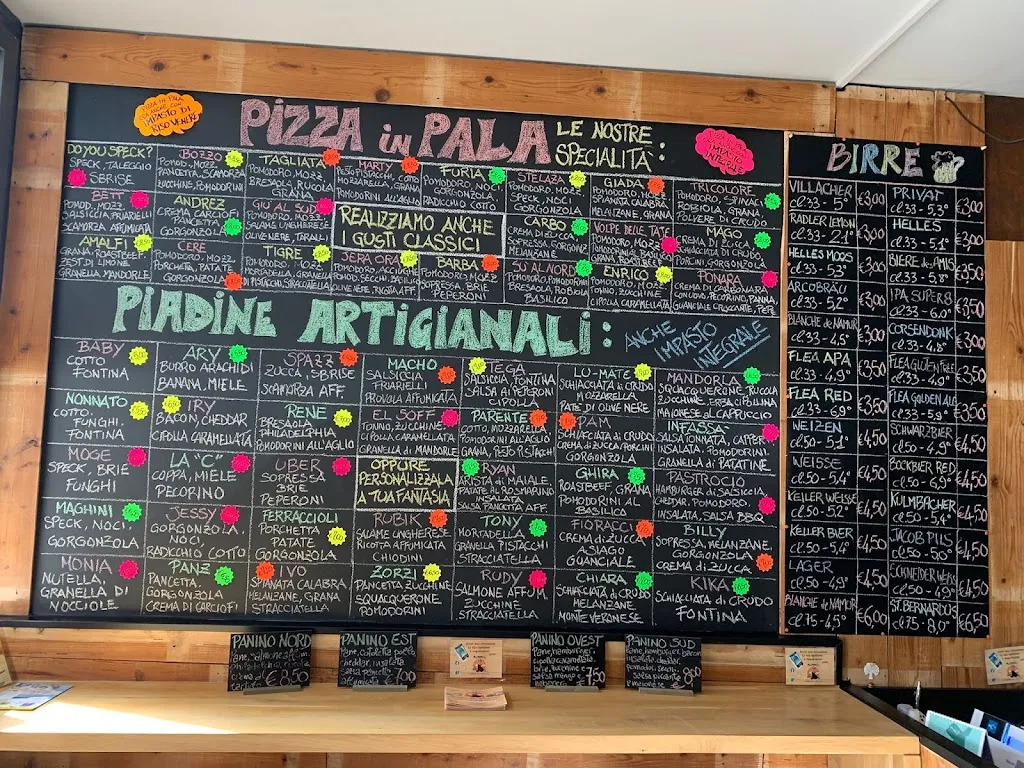 PIZZA in PALA
LE NOSTRE
SPECIALITÀ:
IMPASTO DI
RISO VENERE
IMPASTO
INTEGRALE
DO YOU SPECK?
SPECK, TALEGGIO
SBRISE
BOZZO
POMOD, MOZZ
PANCETTA, SCAMORZA
ZUCCHINE, POMODORINI
TAGLIATA
POMODORO, MOZZ
BRESAOLA, RUCOLA
GRANA
MARTY
PESTO PISTACCHI
MOZZARELLA, GRANA
FURIA
POMODORO, NOCI
GORGONZOLA
RADICCHIO COTTO
STELAZA
POMODORO, MOZZ
SPECK, NOCI
GORGONZOLA
GIADA
POMODORO, MOZZ
SPIANATA CALABRA
MELANZANE, GRANA
TRICOLORE
POMODORO, SPINACI
ROBIOLA, GRANA
POLVERE DI
BETT
POMOD, MOZZ
SALSICCIA, FRIARIELLI
SCAMORZA AFFUMICATA
ANDREZ
CREMA CARCIOFI
PANCETTA
GORGONZOLA
GIU AL SUD
POMODORO, MOZZ
SALAME UNGHERESE
OLIVE NERE, TARALLI
REALIZZIAMO ANCHE
I GUSTI CLASSICI
CARBO
CREMA DI
SOPRESSA, GORGONZ
MELANZANE
VOLPE DELLE TATE
POMODORO, MOZZ
MAGO
CREMA DI ZUCCA
PORCINI GORGONZOLA
AMALFI
GRANA, ROASTBEEF
ZEST DI LIMONE
GRANELLA MANDORLE
CERE
POMODORO, MOZZ
PORCHETTA, PATATE
GORGONZOLA
TIGRE
POMODORO, MOZZ
MORTADELLA, GRANELLA
DI PISTACCHI, STRACCIATELLA
JERA ORA
POMODORO, ACCIUGHE
BARBA
POMODORO, MOZZ
SOPRESSA, BRIE
PEPERONI
SU AL NORD
BRESAOLA, ROBIOLA
BASILICO
ENRICO
POMODORO, MOZZ
TONNO, ZUCCHINE
CIPOLLA CARAMELLATA
PONARA
CREMA DI CARBONARA
CON UOVO, PECORINO, PANNA,
GUANCIALE CROCCANTE, PEPE
PIADINE ARTIGIANALI:
ANCHE
IMPASTO
INTEGRALE
BABY
COTTO
FONTINA
ARY
BURRO ARACHIDI
BANANA, MIELE
SPAZZ
ZUCCA, SBRISE
SCAMORZA AFF.
MACHO
SALSICCIA
FRIARIELLI
PROVOLA AFFUMICATA
TEGA
SALSICCIA, FONTINA
SALSA AI PEPERONI
CIPOLLA
LU-MATE
SCHIACCIATA di CRUDO
MOZZARELLA
PATE' DI OLIVE NERE
MANDORLA
SQUACQUERONE, RUCOLA
ZUCCHINE, ERBA CIPOLLINA
MAIONESE al CAPPUCCIO
NONNATO
COTTO.
FUNGHI.
FONTINA
IRY
BACON, CHEDDAR
CIPOLLA CARAMELLATA
RENE
BRESAOLA
PHILADELPHIA
POMODORINI ALL'AGLIO
EL SOFF
TONNO, ZUCCHINE,
CIPOLLA CARAMELLATA
GRANELLA di MANDORLE
PARENTE
COTTO, MOZZARELLA
POMODORINI ALL'AGLIO
GRANA, PESTO PISTACCHI
DAM
SCHIACCIATA di CRUDO
CREMA di ZUCCA, PORCINI
GORGONZOLA
INFASSA
SALSA TONNATA, CAPPERI
INSALATA, POMODORINI
GRANELLA di PATATINE
MOGE
SPECK, BRIE
FUNGHI
LA "C"
COPPA, MIELE
PECORINO
UBER
SOPRESSA
BRIE
PEPERONI
OPPURE
PERSONALIZZALA
A TUA FANTASIA
RYAN
ARISTA di MAIALE,
PATATE AL ROSMARINO
INSALATA
SALSA PANCETTA AFF
GHIRA
ROASTBEEF, GRANA
POMODORINI AL
BASILICO
PASTROCIO
HAMBURGER di SALSICCIA
CHEDDAR, POMODORO,
INSALATA, SALSA BBQ
MAGHINI
SPECK, NOCI.
GORGONZOLA
JESSY
GORGONZOLA.
NOCI,
RADICCHIO COTTO
FERRACCIOLI
PORCHETTA
PATATE
GORGONZOLA
RUBIK
SALAME UNGHERESE
RICOTTA AFFUMICATA
CHIODINI
TONY
MORTADELLA,
GRANELLA PISTACCHI
STRACCIATELLA
FIORACCI
CREMA di ZUCCA
ASIAGO
GUANCIALE
BILLY
SOPRESSA, MELANZANE,
GORGONZOLA
CREMA di ZUCCA
MONIA
NUTELLA,
GRANELLA DI
NOCCIOLE
PANZ
PANCETTA.
GORGONZOLA
CREMA DI CARCIOFI
IVO
SPIANATA CALABRA,
MELANZANE, GRANA,
STRACCIATELLA
ZORZI
PANCETTA ZUCCHINE
SQUACQUERONE
POMODORINI
RUDY
SALMONE AFFUM
ZUCCHINE
STRACCIATELLA
CHIARA
SCHIACCIATA di CRUDO
MELANZANE
MONTE VERONESE
KIKA
SCHIACCIATA di CRUDO
FONTINA
BIRRE
VILLACHER
cl.33 - 5° €3,00
RADLER LEMON
cl.33 - 2.1° €3,00
HELLES MOOS
cl.33 - 5,3° €3,00
ARCOBRÄU
cl.33 - 5,2° €3,00
BLANCHE de NAMUR
cl.33 - 4,5° €3,00
FLEA APA
cl.33 - 4,9° €3,50
FLEA RED
cl.33 - 6,9° €3,50
WEIZEN
cl.50 - 5,1° €4,50
WEISSE
cl.50 - 5,4° €4,50
KELLER WEISSE
cl.50 - 5,2° €4,50
KELLER BIER
cl.50 - 5,4° €4,50
LAGER
cl.50 - 4,9° €4,50
BLANCHE de NAMUR
cl.75 - 4,5° €6,00
PRIVAT
cl.33 - 5,3° €3,00
HELLES
cl.33 - 5,1° €3,00
BIERE des AMIS
cl.33 - 5,8° €3,50
IPA SUPER 8
cl.33 - 6,0° €3,50
CORSENDONK
€3,50
FLEA GLUTENFREE
cl.33 - 4,8° €3,50
FLEA GOLDEN ALE
cl.33 - 5,9° €3,50
SCHWARZBIER
cl.50 - 4,9° €4,50
BOCKBIER RED
€4,50
KULMBACHER
cl.50 - 5,4° €4,50
JACOB PILS
cl.50 - 5,0° €4,50
SCHNEIDER WEISS
€4,50
ST. BERNARDUS
cl.75 - 8,0° €6,50
PANINO NORD
€ 8,50
PANINO EST
€ 7,00
PANINO OVEST
€ 7,50
PANINO SUD